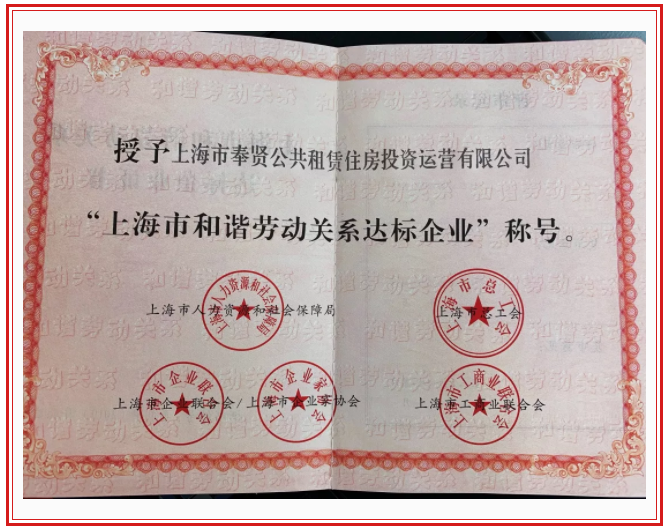 授予上海市奉贤公共租赁住房投资运营有限公司
“上海市和谐劳动关系达标企业”称号。
上海市人力资源和社会保障局
上海市总工会
上海市企业联合会/上海市企业家协会
上海市工商业联合会
上海市人力资源和社会保障局
上海市总工会
上海市企业联合会
上海市企业家协会
上海市工商业联合会
和谐劳动关系